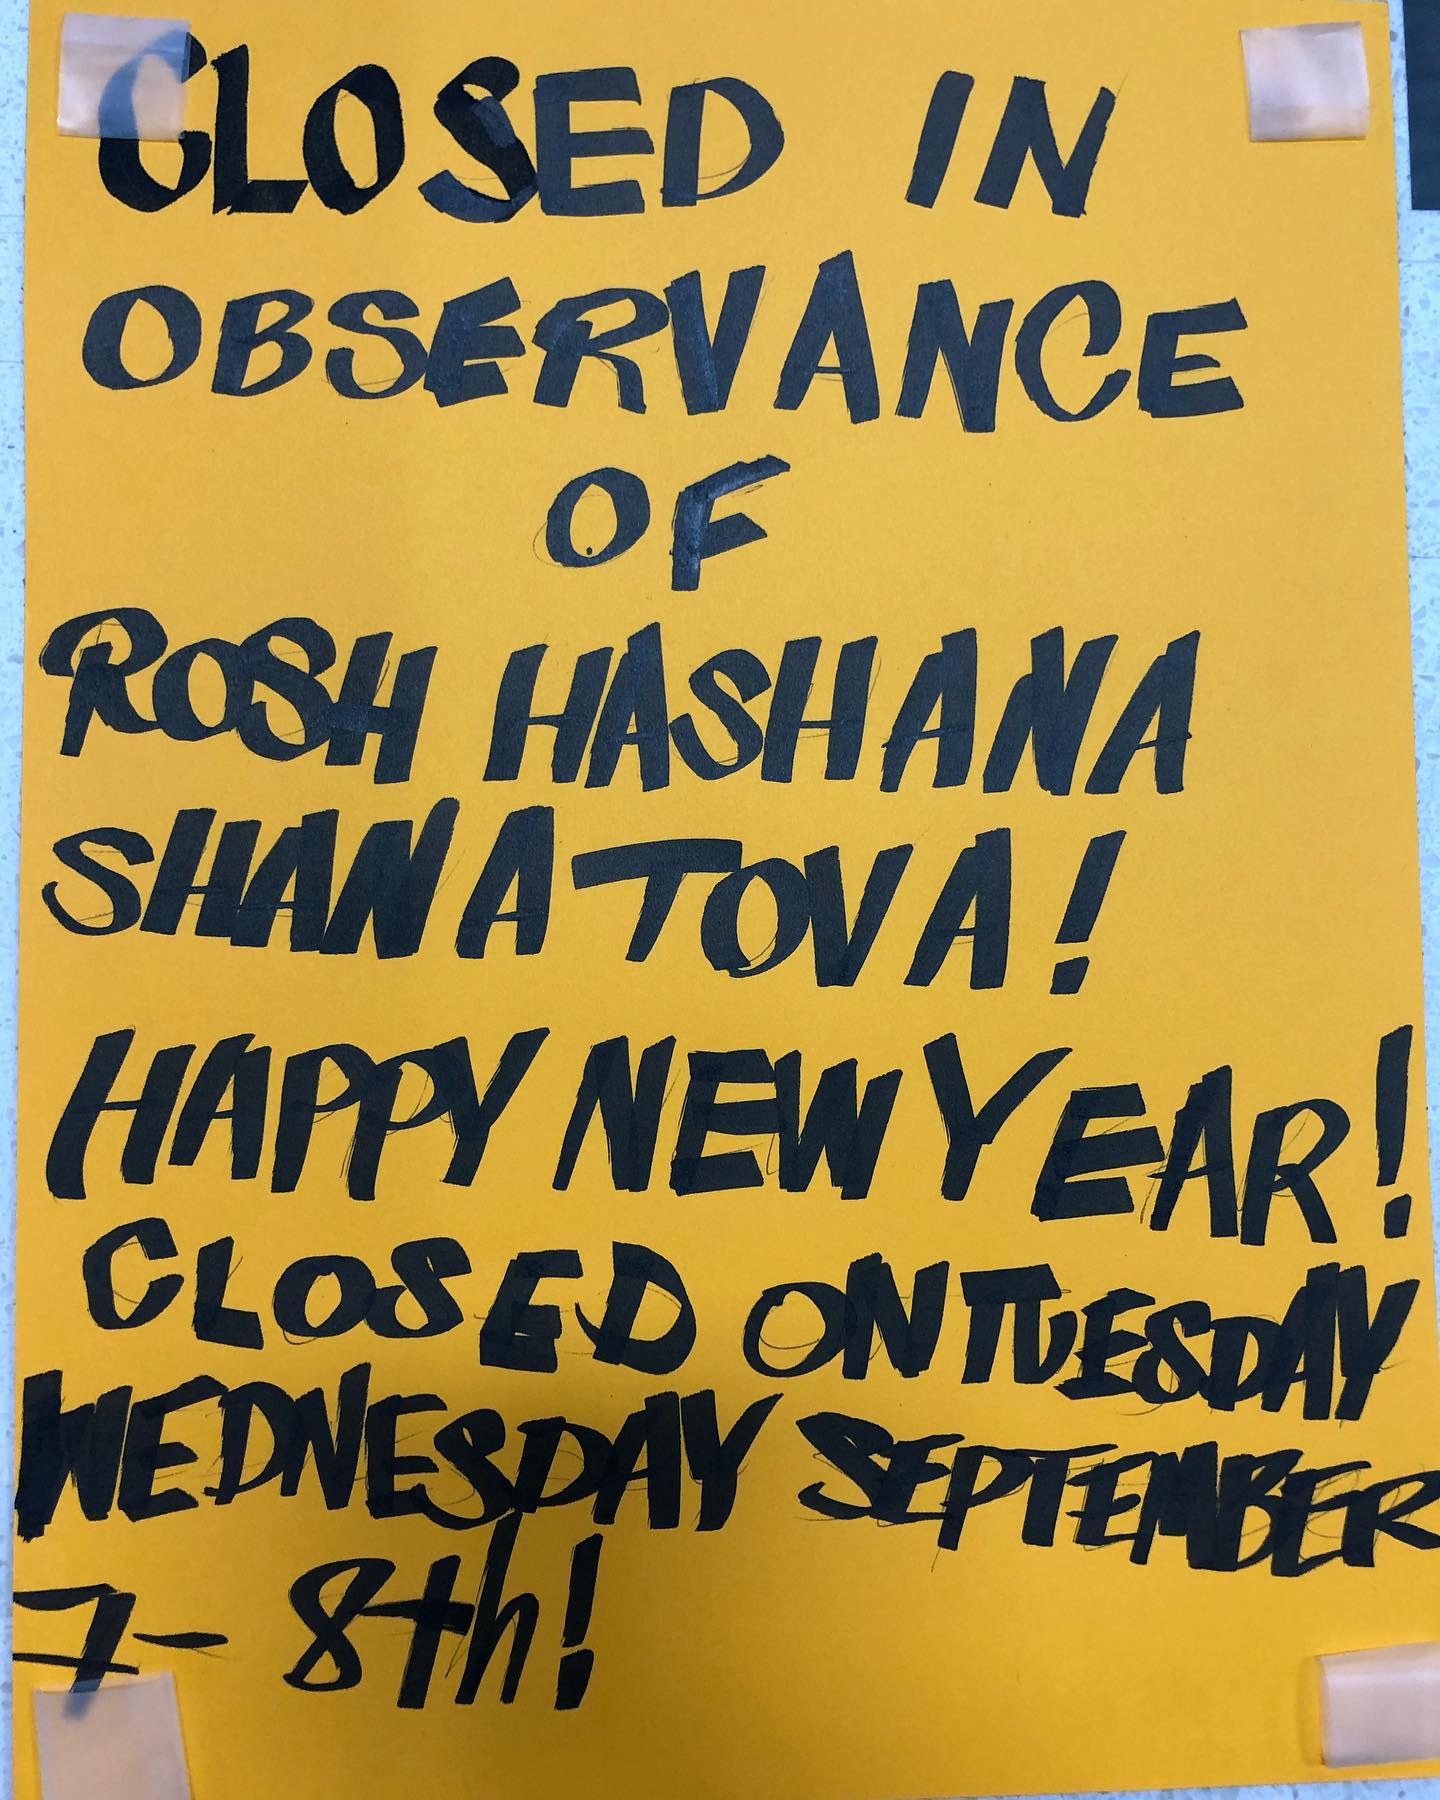 CLOSED IN
OBSERVANCE
OF
ROSH HASHANA
SHANA TOVA!
HAPPY NEW YEAR!
CLOSED ON TUESDAY
WEDNESDAY SEPTEMBER
7- 8th!